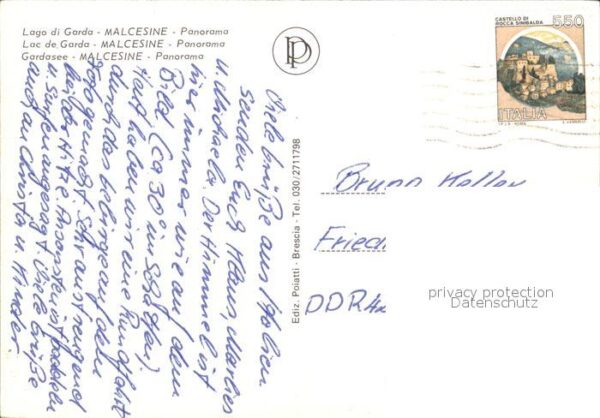 Lago di Garda - MALCESINE - Panorama
Lac de Garda - MALCESINE - Panorama
Gardasee - MALCESINE - Panorama
CASTELLO DI
ROCCA SINIBALDA
550
ITALIA
Viele Grüße aus Italien
senden Euch Klaus Marlies
u. Michaela. Der Himmel ist
hier immer wie auf dem
Bild (ca 30° im Schatten)
Heut haben wir eine Rundfahrt
durch das Gebirge auf dem
gemacht. Sehr anstrengend
bei der Hitze. Ansonsten ist baden
u. surfen angesagt. Viele Grüße
auch an Christa u. Kinder.
Ediz. Poiatti - Brescia - Tel. 030/2711798
Bruno
Fried
DDR
privacy protection
Datenschutz